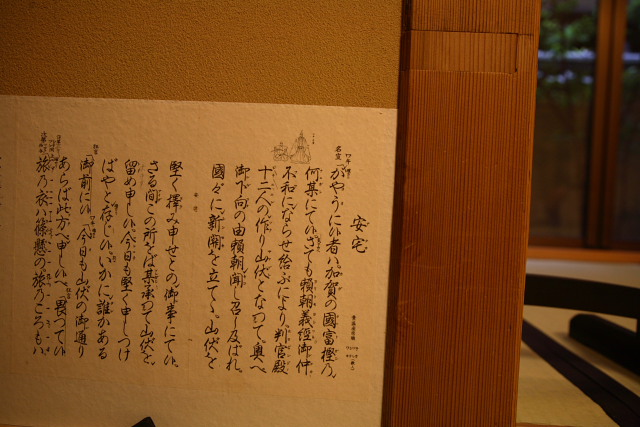 安宅
名宣「かやうに候者ハ加賀の國富樫乃
何某にて候。さても頼朝義經御仲
不和にならせ給ふにより。判官殿
十二人の作り山伏となつて。奥へ
御下向の由頼朝聞し召し及ばれ。
國々に新關を立てゝ。山伏を
堅く擇み申せとの御事にて候。
さる間この所をば某承つて山伏を
留め申し候。今日も堅く申しつけ
ばやと存じ候。いかに誰かある
御前に候「今日も山伏の御通り
あらば此方へ申し候へ「畏つて候
旅乃衣ハ篠懸の。旅乃衣ハ篠懸の旅乃ころもハ